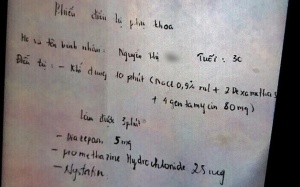 Phiếu điều trị phụ khoa
Họ và tên bệnh nhân: Nguyễn Tuổi: 30
Điều trị: - Khí dung 10 phút (Nacl 0,9% + 2 Dexametha
+ 4 gentamycin 80mg)
Làm thuốc 5 phút
- Diazepam 5mg
- promethazine Hydrochloride 25mg
- Nystatin